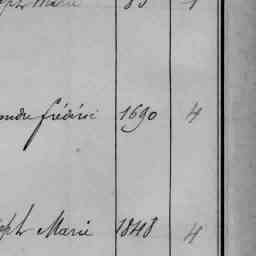 Marie 83 4
frédéric 1690 4
Marie 1848 4